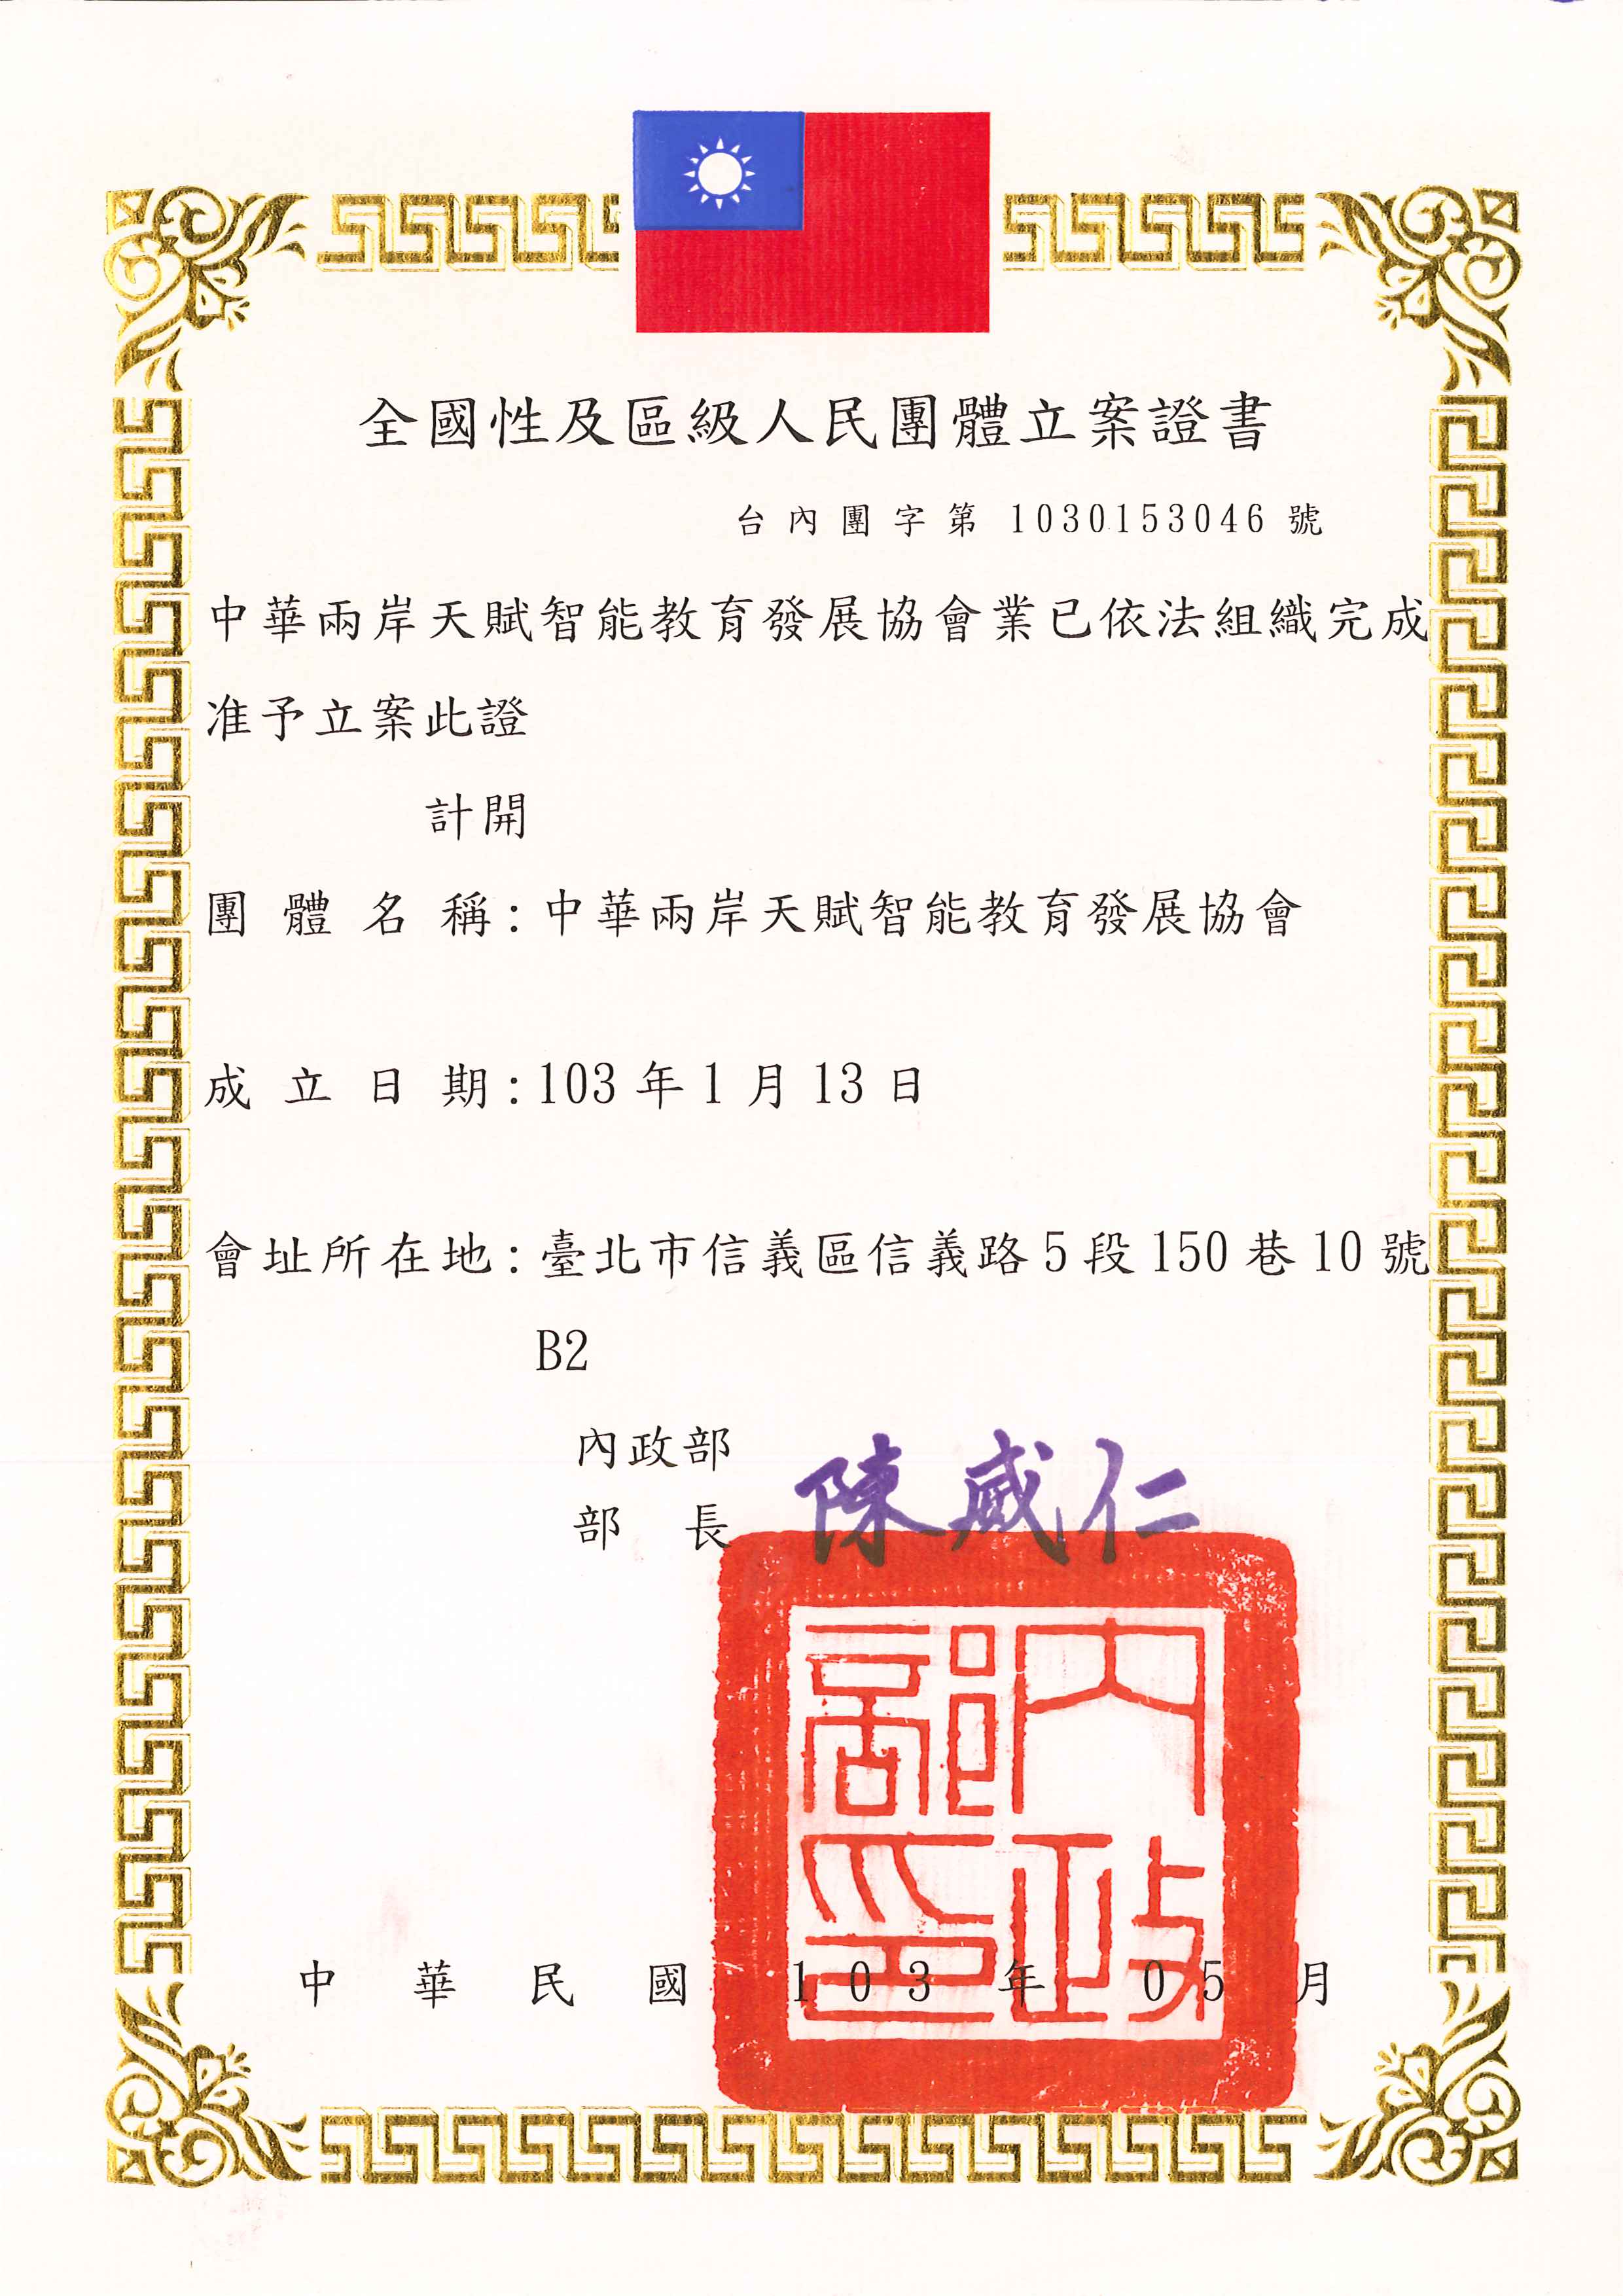 全國性及區級人民團體立案證書
台內團字第 1030153046 號
中華兩岸天賦智能教育發展協會業已依法組織完成
准予立案此證
計開
團體名稱：中華兩岸天賦智能教育發展協會
成立日期：103 年 1 月 13 日
會址所在地：臺北市信義區信義路 5 段 150 巷 10 號
B2
內政部
部長 陳威仁
內政部印
中華民國 103 年 05 月